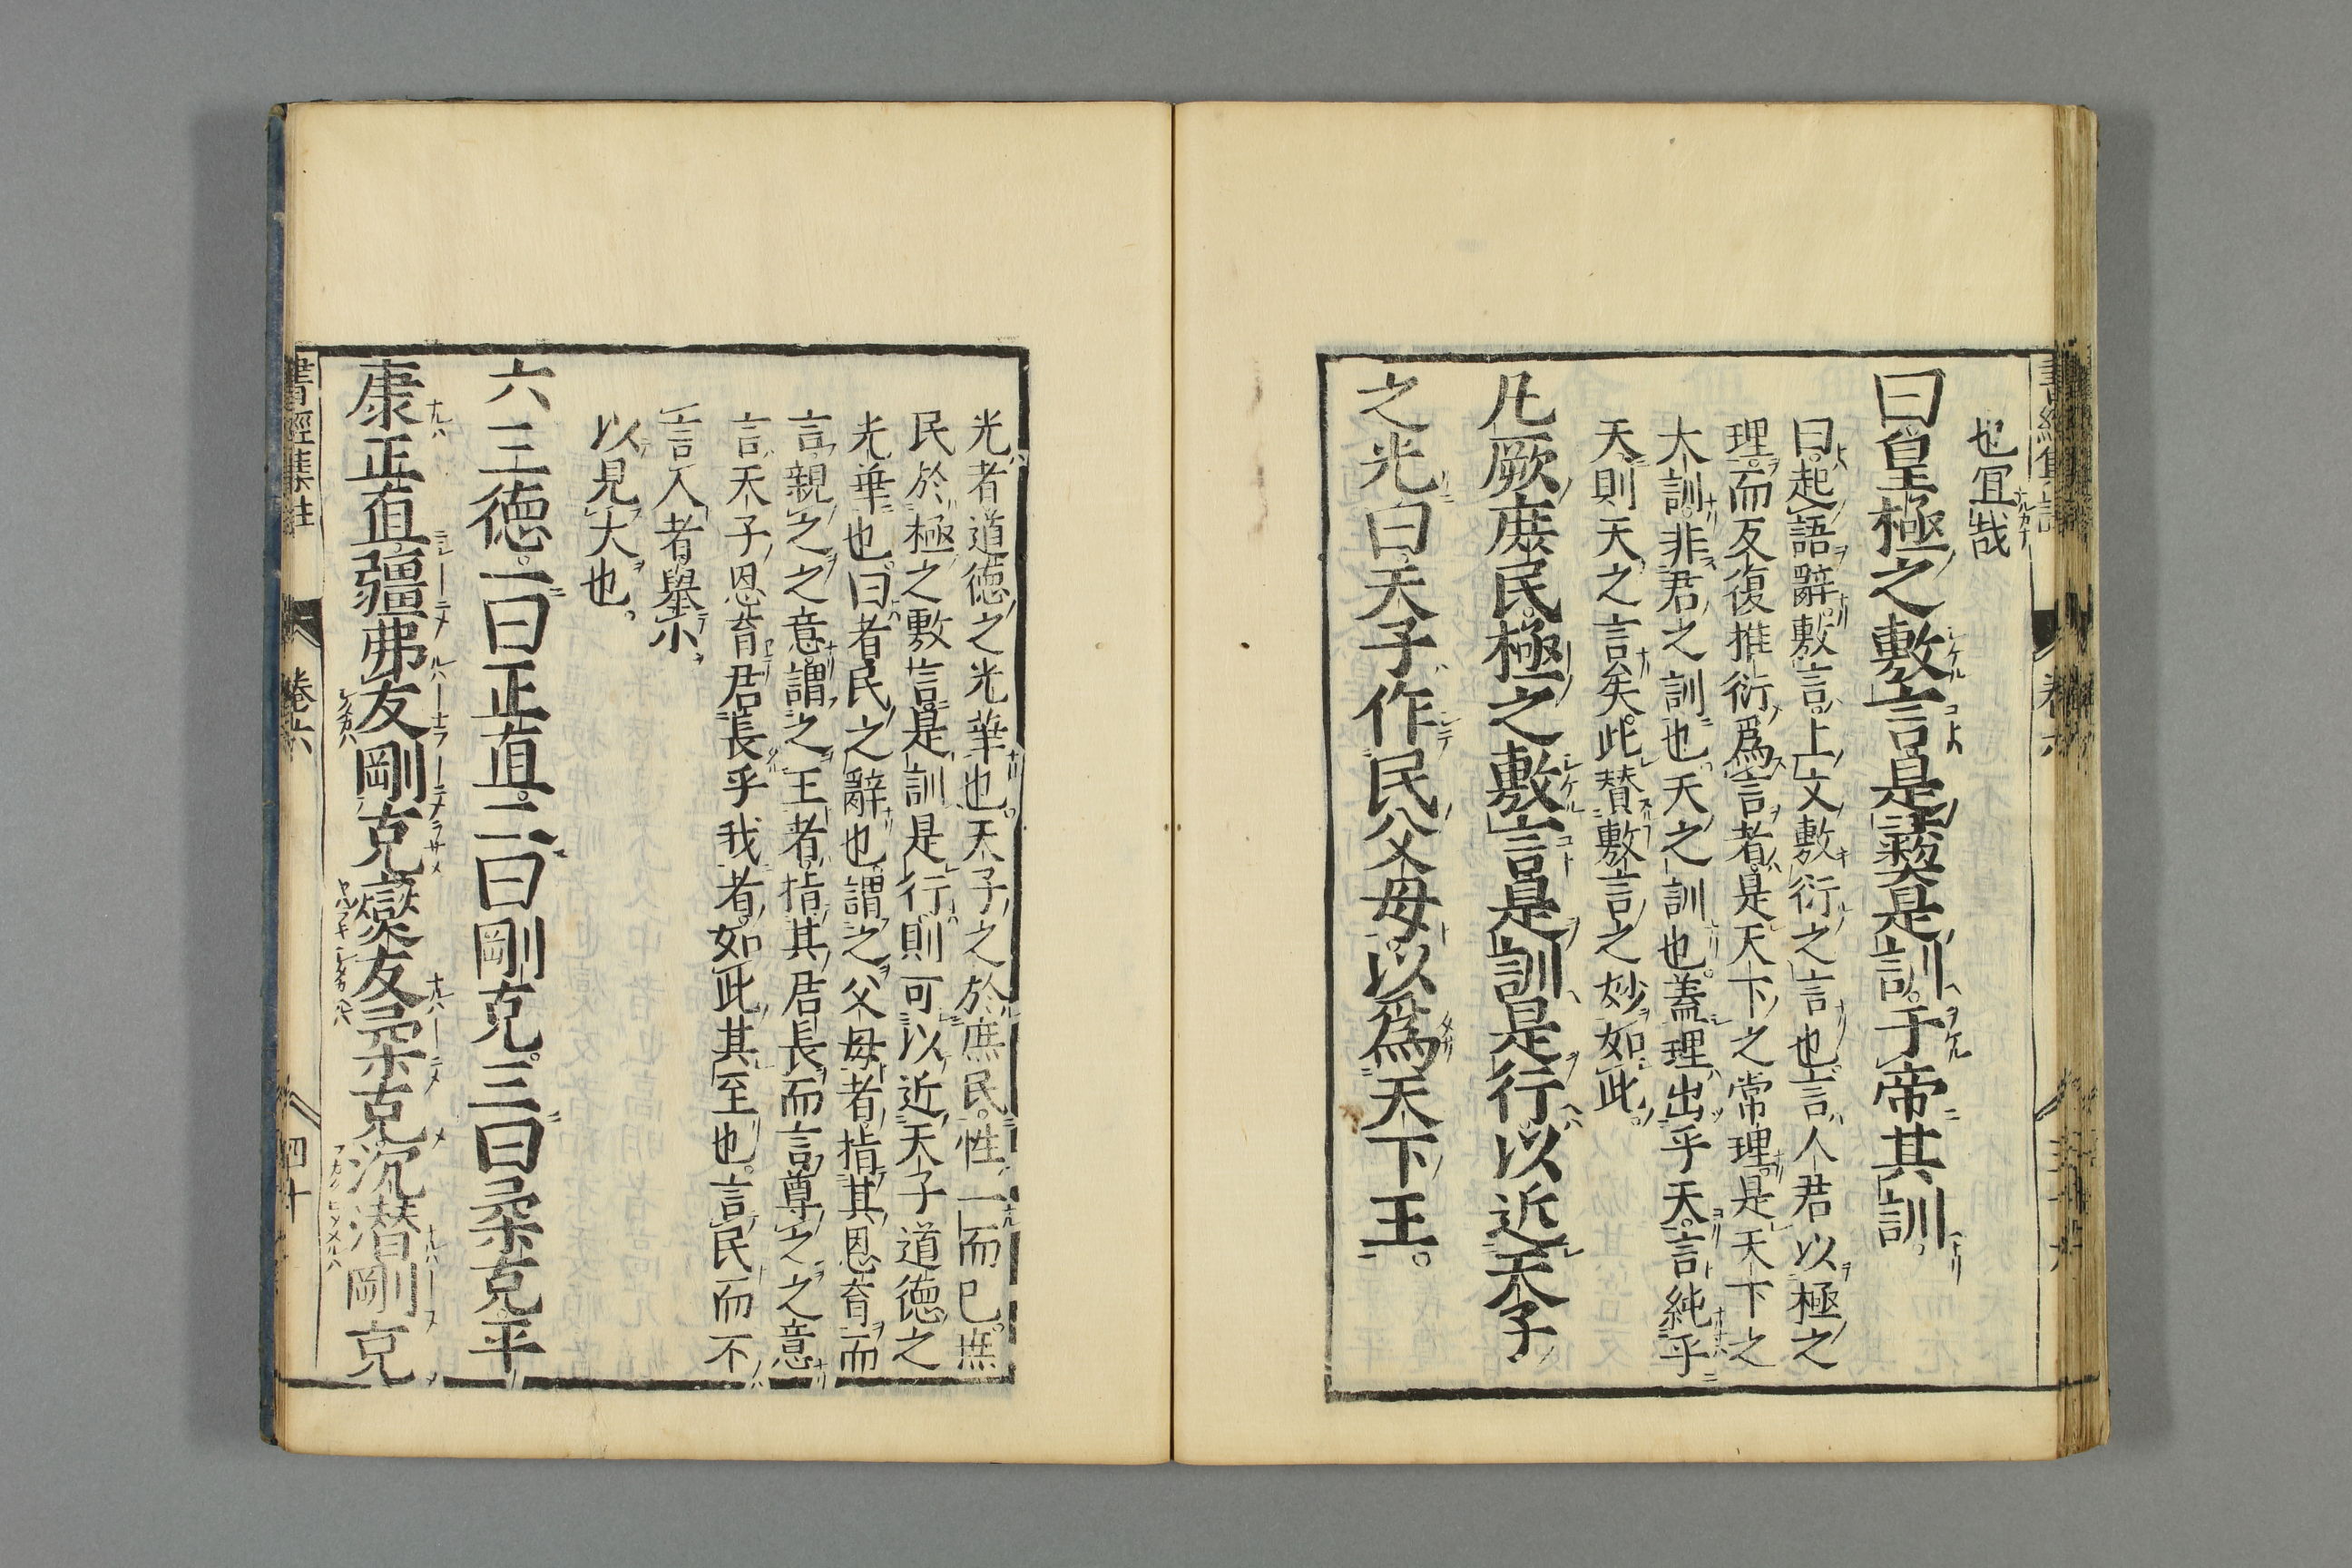 也宜哉
曰皇極之敷言是彝是訓于帝其訓
曰起語辭敷言上文敷衍之言也言人君以極之
理而反復推衍爲言者是天下之常理是天下之
大訓非君之訓也天之訓也蓋理出乎天言純乎
天則天之言矣此贊敷言之妙如此
凡厥庶民極之敷言是訓是行以近天子
之光曰天子作民父母以爲天下王
光者道德之光華也天子之於庶民性一而已庶
民於極之敷言是訓是行則可以近天子道德之
光華也曰者民之辭也謂之父母者指其恩育而
言親之之意謂之王者指其居長而言尊之之意
言天子恩育君長乎我者如此其至也言民而不
言人者舉小
以見大也
六三德一曰正直二曰剛克三曰柔克平
康正直彊弗友剛克燮友柔克沉潛剛克
書經集註 卷六 四十